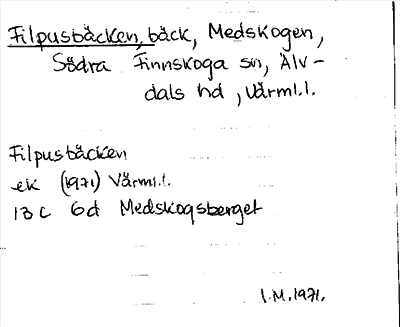 Filpusbäcken, bäck, Medskogen,
Södra Finnskoga sn, Älv-
dals hd, Värml.l.
Filpusbäcken
ek (1971) Värml.l.
13 C 6d Medskogsberget
I.M. 1971.